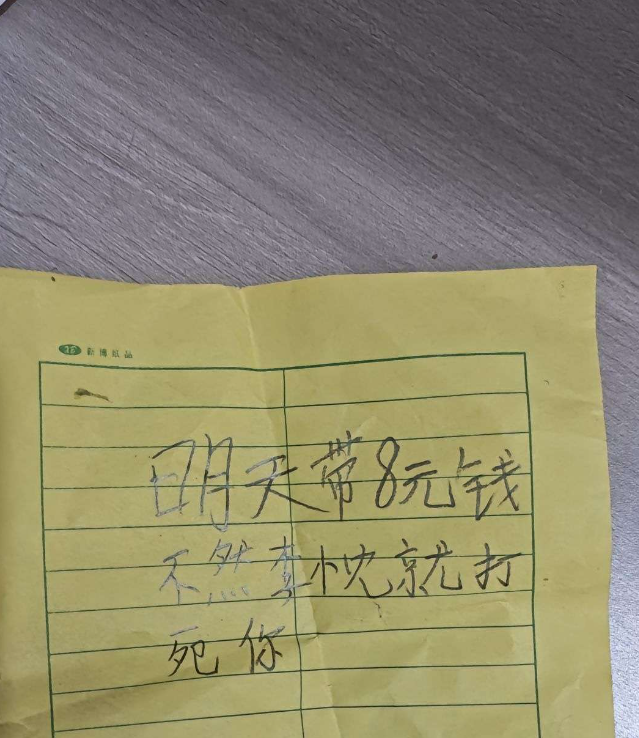 新博纸品
明天带8元钱
不然李小忱就打
死你